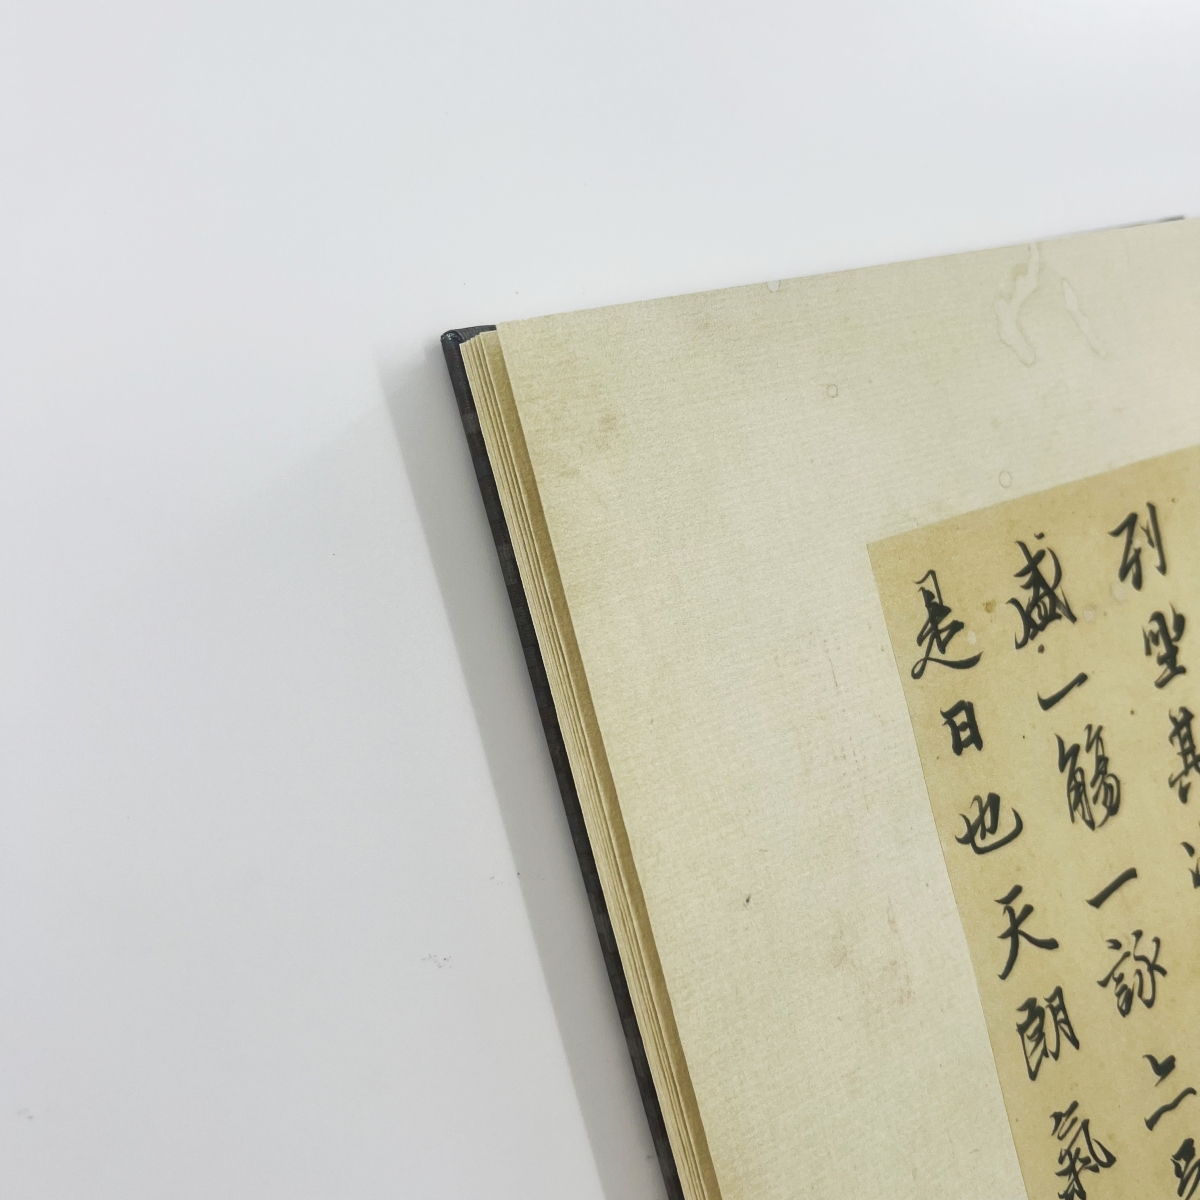 列坐其次
盛一觴一詠上
是日也天朗氣